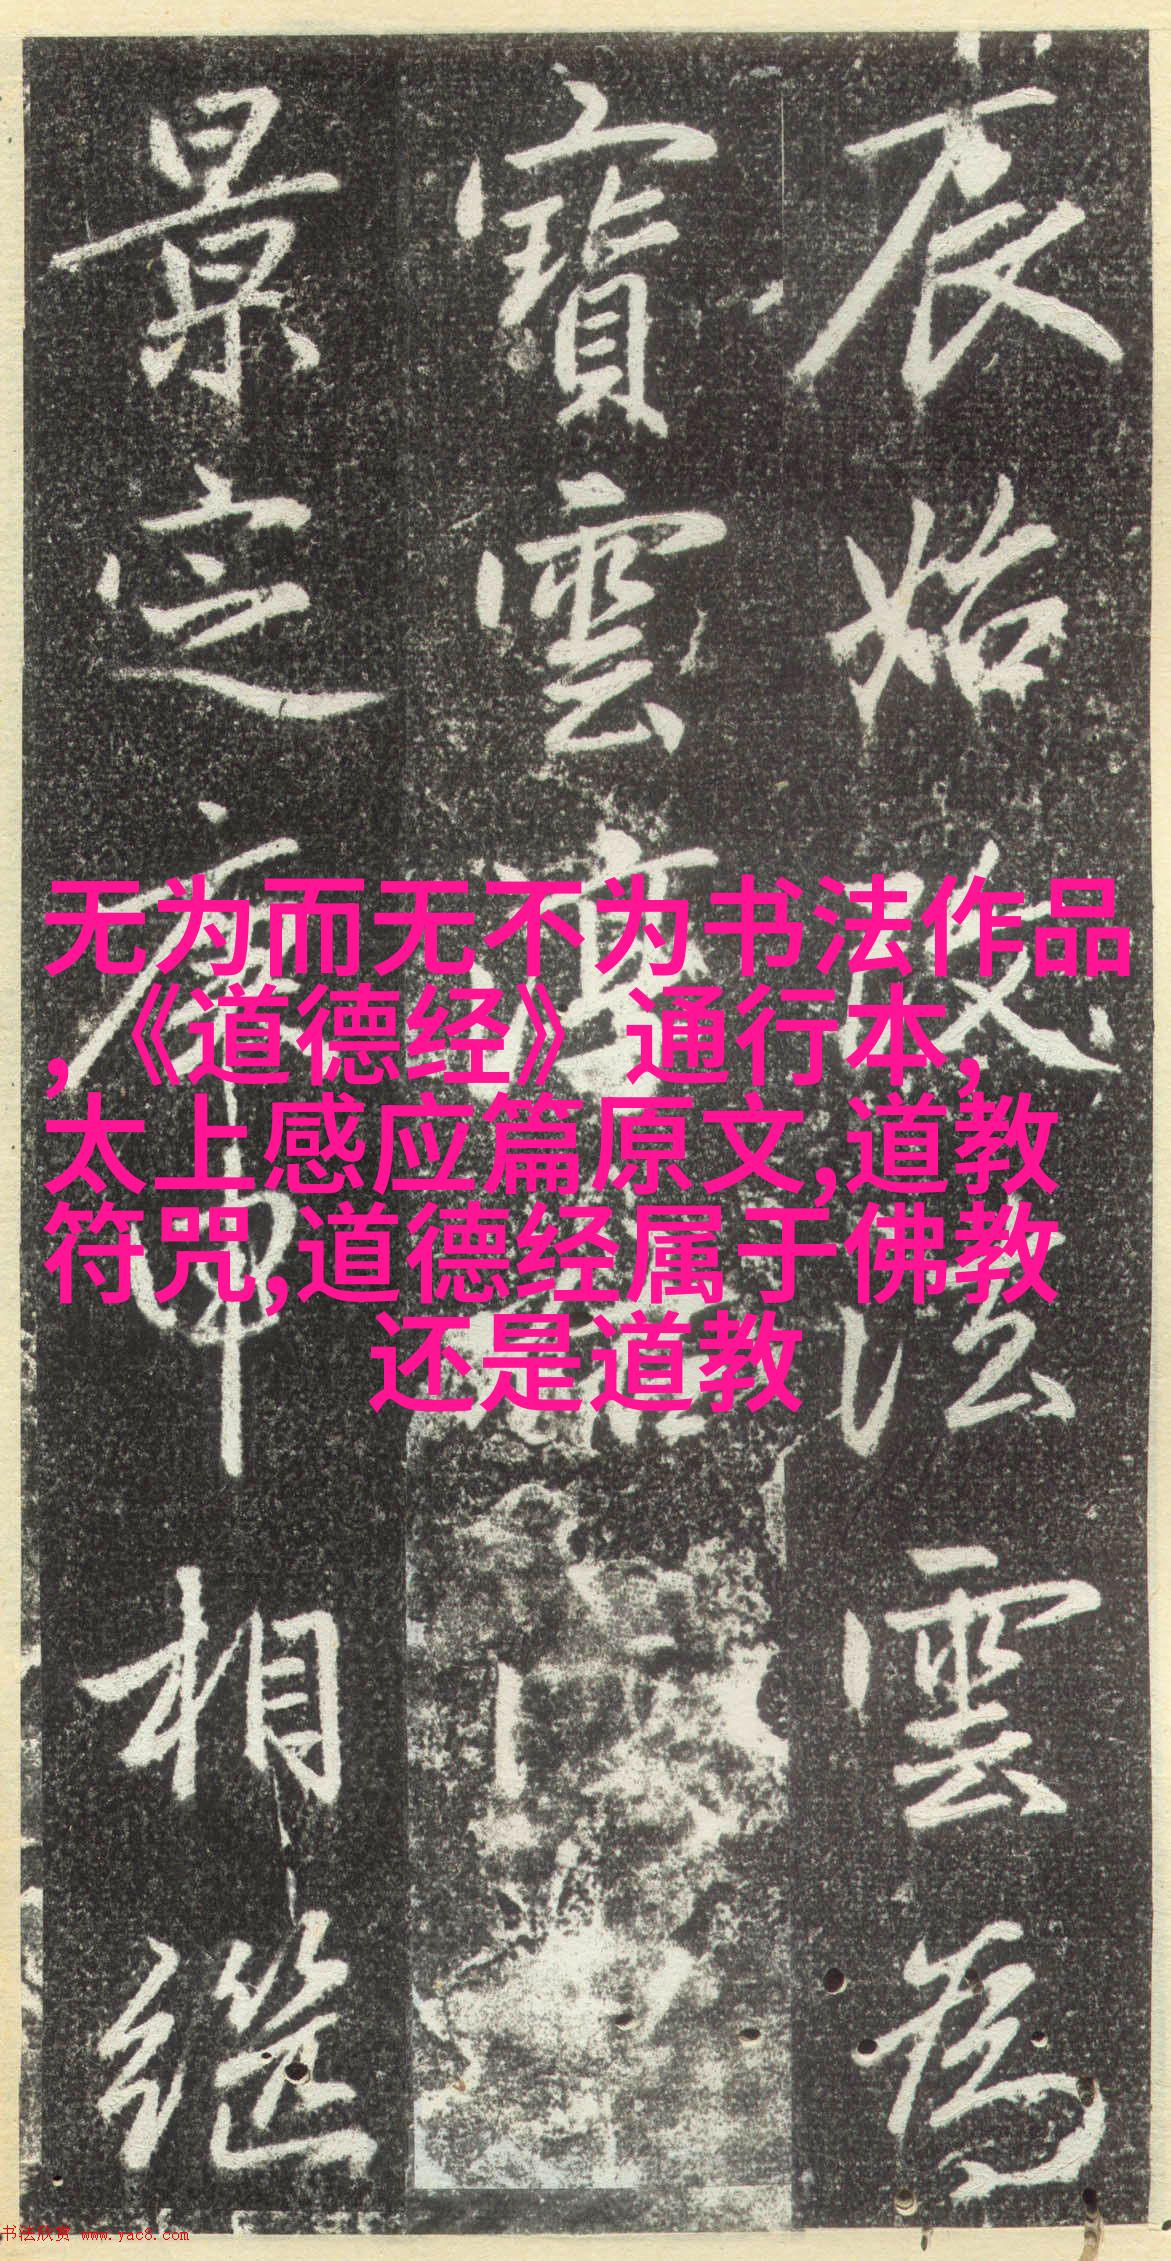 辰始法雲為
寶雲
景定庚申相繼
无为而无不为书法作品
,《道德经》通行本,
太上感应篇原文,道教
符咒,道德经属于佛教
还是道教
书法欣赏 www.yac8.com